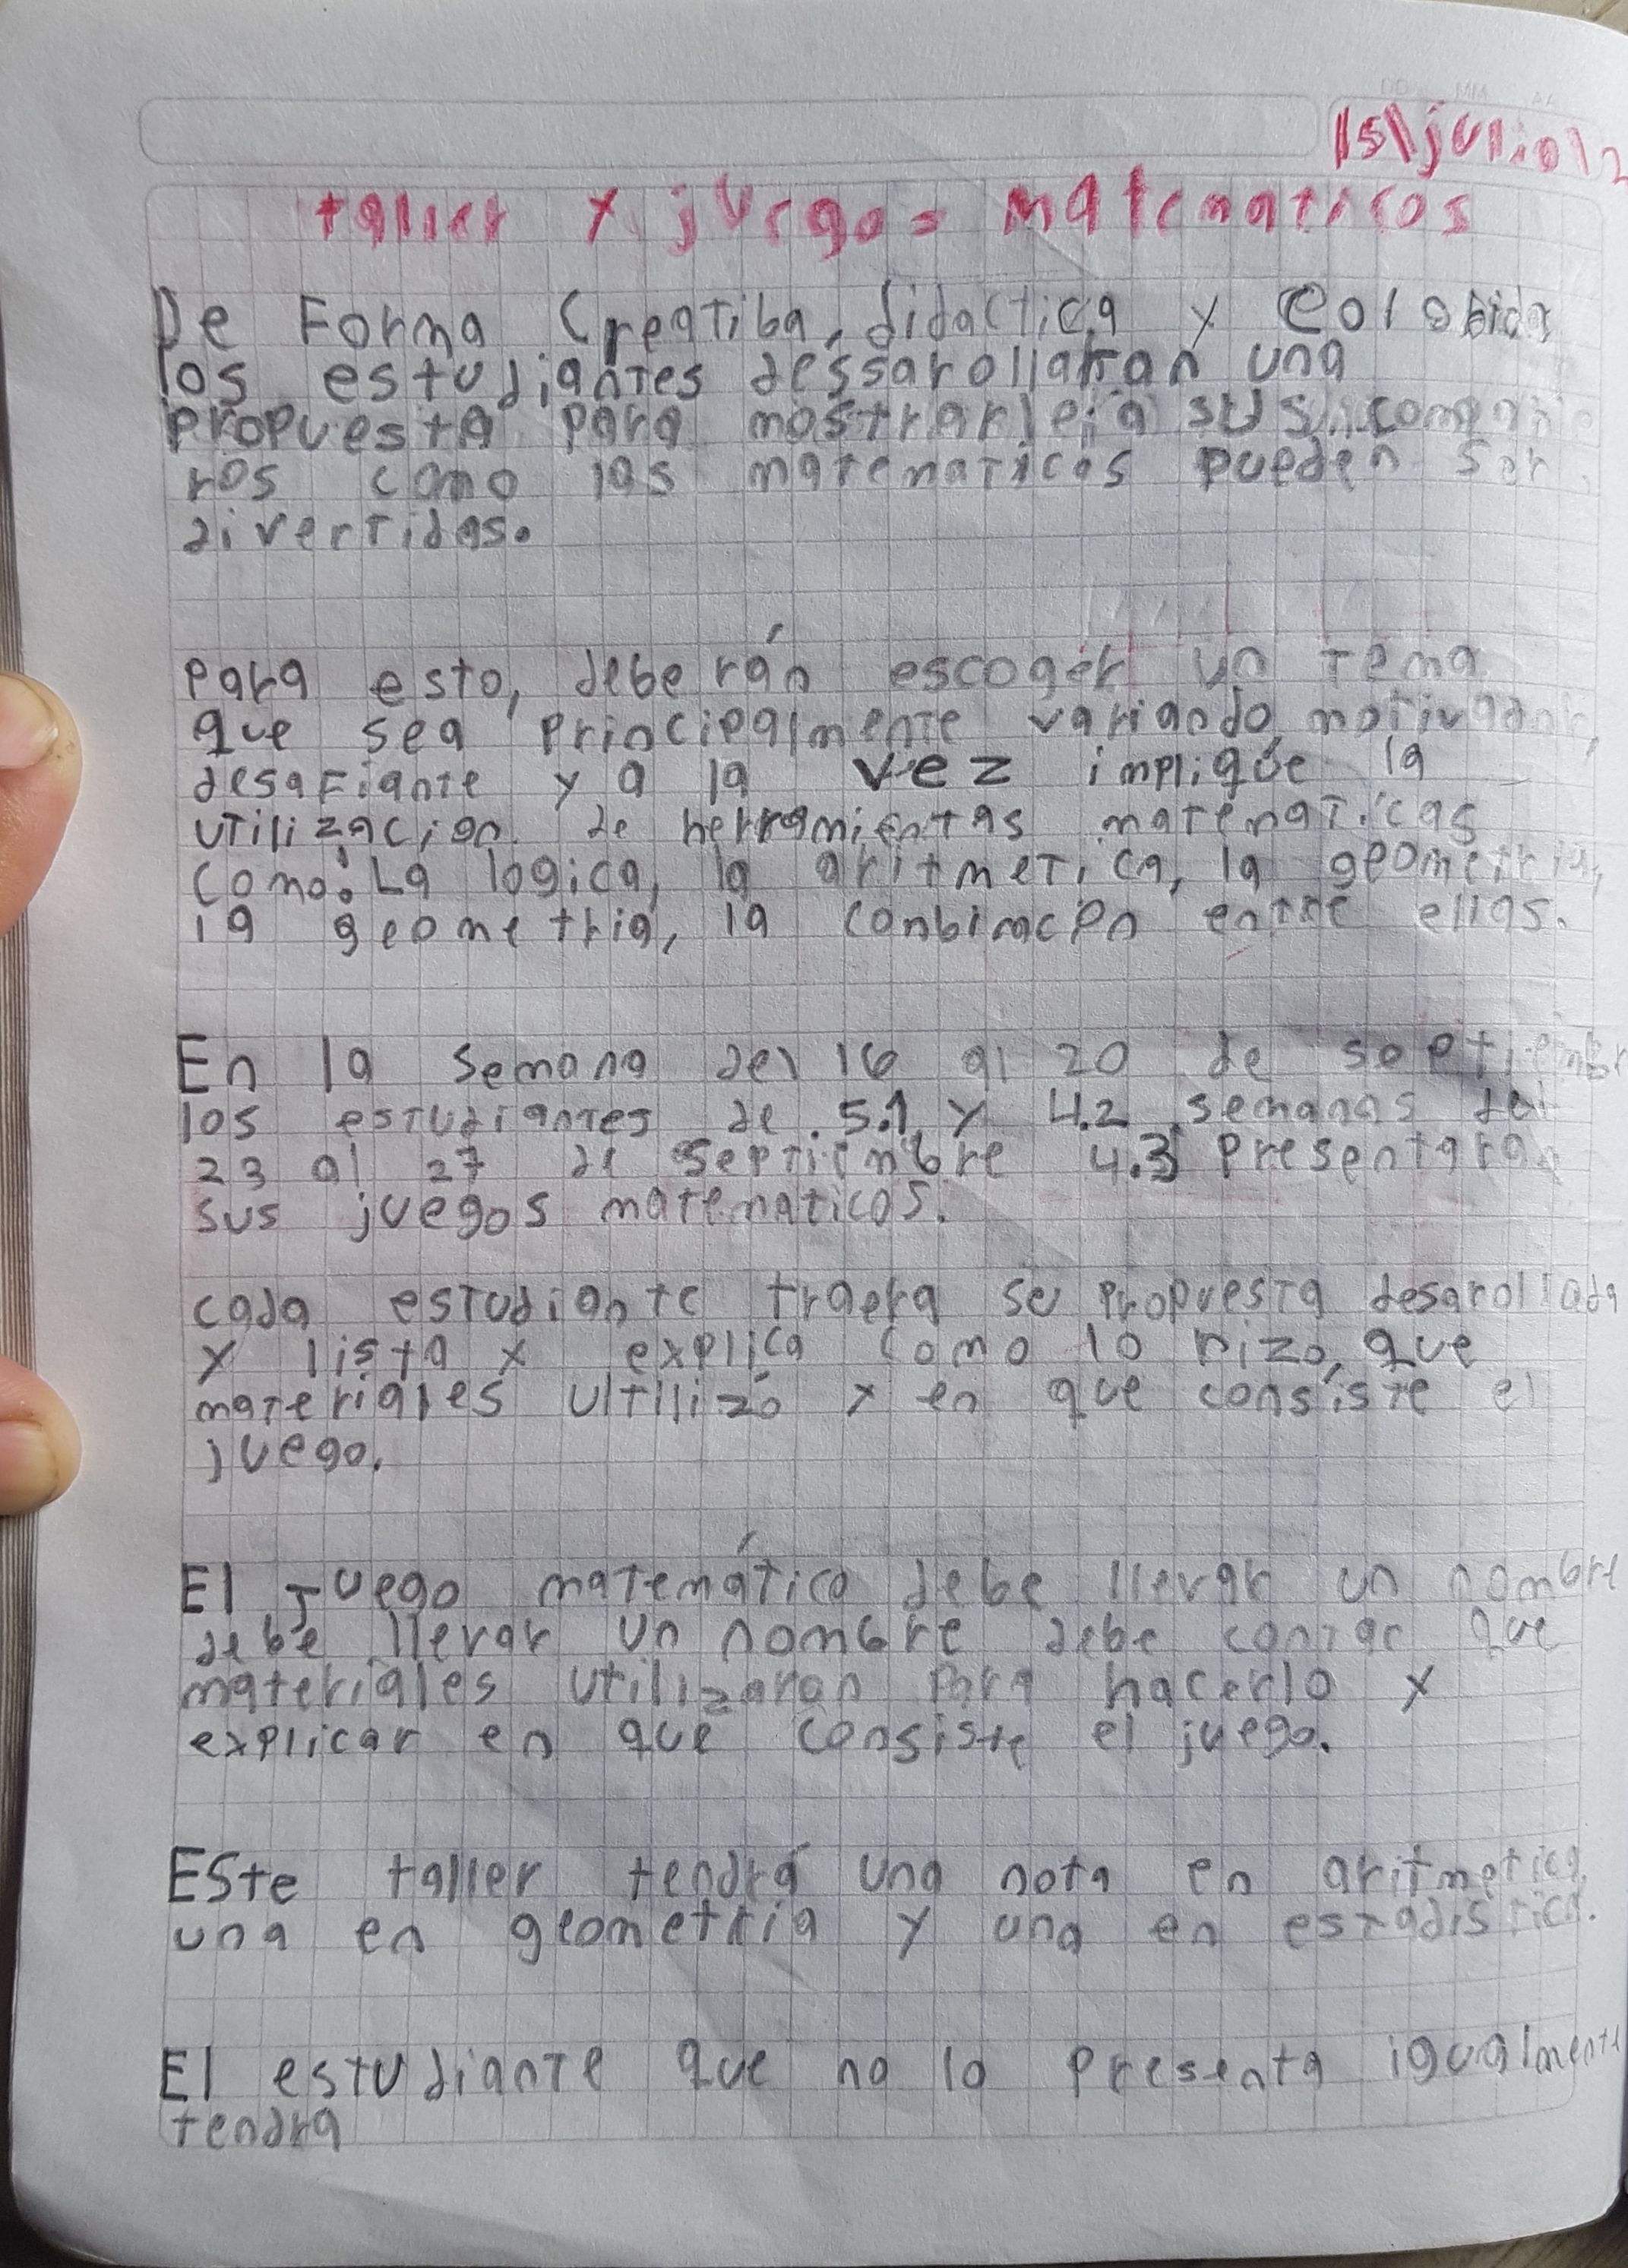 15\julio\2
taller y juegos matematicos
De Forma Creatiba, didactica y
los estudiantes dessarollaran una
propuesta para mostrarle a sus compañe
ros como las matematicas pueden ser
divertidas.
para esto, deberán escoger un tema
que sea principalmente variando, motivador,
desafiante y a la vez implique la
utilizacion de herramientas matematicas
como: La logica, la aritmetica, la geometria,
la geometria, la conbinacon entre ellas.
En la semana del 16 al 20 de septiembr
los estudiantes de 5.1 y 4.2 semanas del
23 al 27 de septiembre 4.3 presentaran
sus juegos matematicos.
cada estudiante traera su propuesta desarollada
y lista y explica como lo hizo, que
materiales ultilizó y en que consiste el
juego.
El Juego matemático debe llevar un nombre
debe llevar un nombre debe contar que
materiales utilizaron para hacerlo y
explicar en que consiste el juego.
ESte taller tendrá una nota en aritmetica,
una en geometria y una en estadistica.
El estudiante que no lo presenta igualmente
tendra